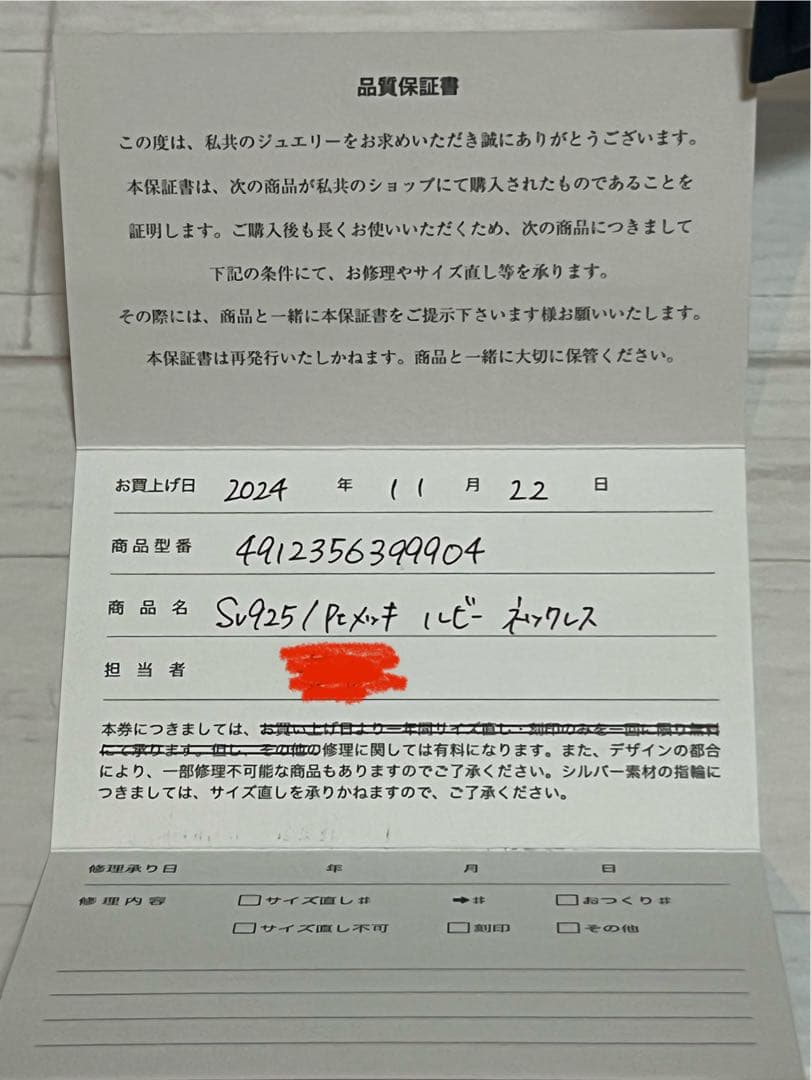 品質保証書
この度は、私共のジュエリーをお求めいただき誠にありがとうございます。
本保証書は、次の商品が私共のショップにて購入されたものであることを
証明します。ご購入後も長くお使いいただくため、次の商品につきまして
下記の条件にて、お修理やサイズ直し等を承ります。
その際には、商品と一緒に本保証書をご提示下さいます様お願いいたします。
本保証書は再発行いたしかねます。商品と一緒に大切に保管ください。
お買上げ日 2024 年 11 月 22 日
商品型番 4912356399904
商品名 Sv925/Ptメッキ ルビー ネックレス
担当者
本券につきましては、お買い上げ日より一年間サイズ直し・刻印のみを一回に限り無料
にて承ります。但し、その他の修理に関しては有料になります。また、デザインの都合
により、一部修理不可能な商品もありますのでご了承ください。シルバー素材の指輪に
つきましては、サイズ直しを承りかねますので、ご了承ください。
修理承り日 年 月 日
修理内容 □サイズ直し# ➡# □おつくり#
□サイズ直し不可 □刻印 □その他